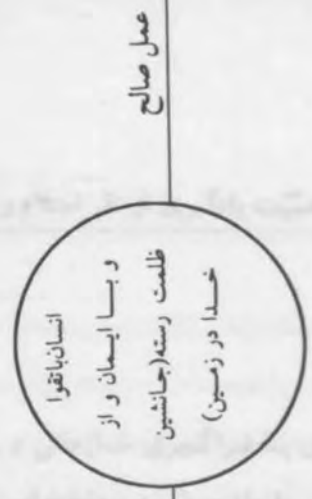 عمل صالح
انسان باتقوا
و بـا ایـمان و از
ظلمت رسته(جـانشین
خـدا در زمـین)